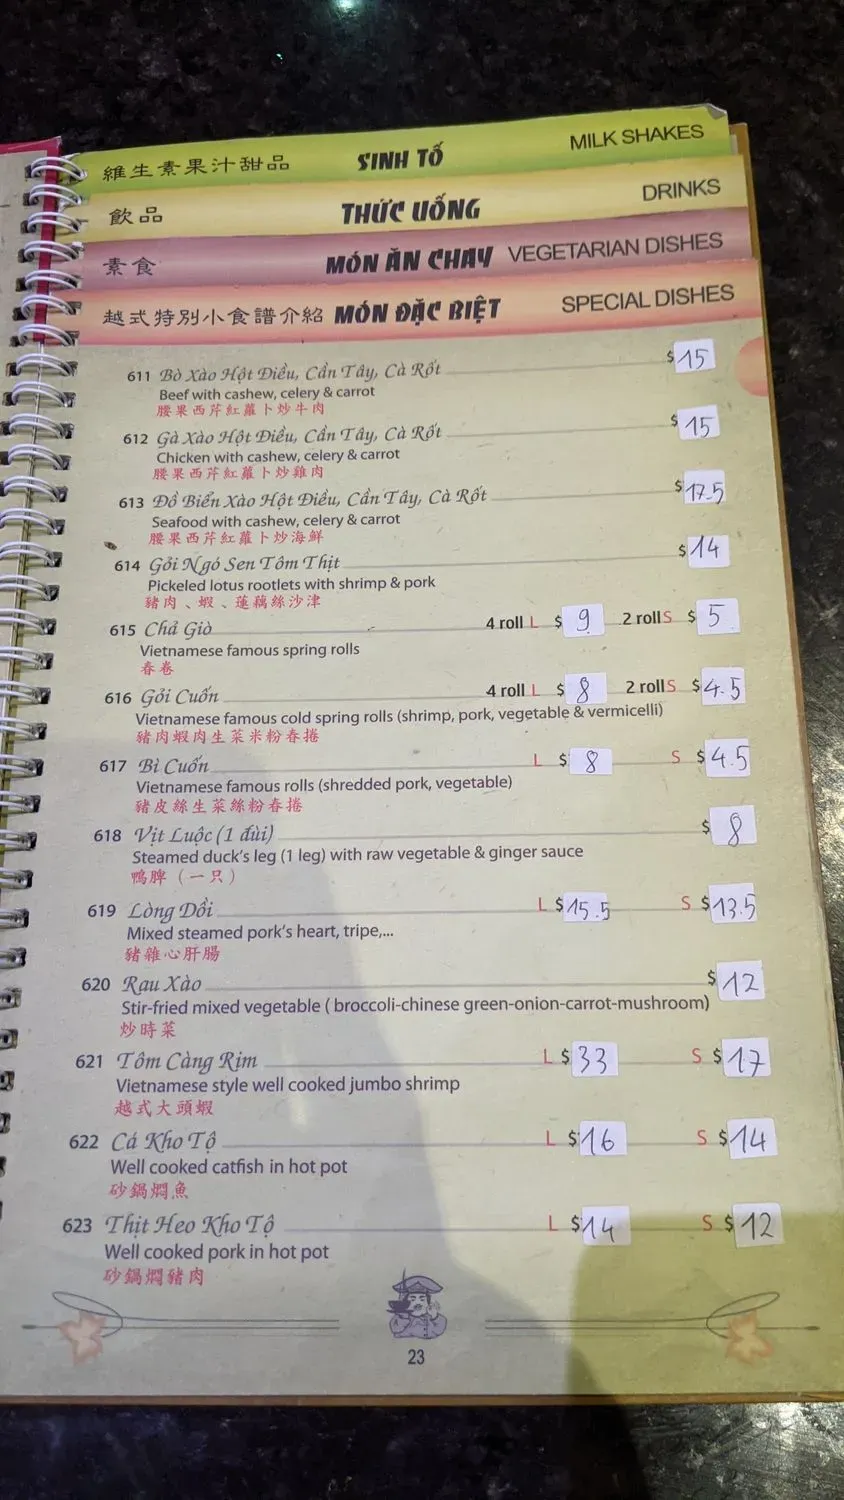 維生素果汁甜品 SINH TỐ MILK SHAKES
飲品 THỨC UỐNG DRINKS
素食 MÓN ĂN CHAY VEGETARIAN DISHES
越式特別小食譜介紹 MÓN ĐẶC BIỆT SPECIAL DISHES
611 Bò Xào Hột Điều, Cần Tây, Cà Rốt $15
Beef with cashew, celery & carrot
腰果西芹紅蘿卜炒牛肉
612 Gà Xào Hột Điều, Cần Tây, Cà Rốt $15
Chicken with cashew, celery & carrot
腰果西芹紅蘿卜炒雞肉
613 Đồ Biển Xào Hột Điều, Cần Tây, Cà Rốt $17.5
Seafood with cashew, celery & carrot
腰果西芹紅蘿卜炒海鮮
614 Gỏi Ngó Sen Tôm Thịt $14
Pickeled lotus rootlets with shrimp & pork
豬肉、蝦、蓮藕絲沙津
615 Chả Giò 4 roll L $9 2 roll S $5
Vietnamese famous spring rolls
春卷
616 Gỏi Cuốn 4 roll L $8 2 roll S $4.5
Vietnamese famous cold spring rolls (shrimp, pork, vegetable & vermicelli)
豬肉蝦肉生菜米粉春捲
617 Bì Cuốn L $8 S $4.5
Vietnamese famous rolls (shredded pork, vegetable)
豬皮絲生菜絲粉春捲
618 Vịt Luộc (1 đùi) $8
Steamed duck's leg (1 leg) with raw vegetable & ginger sauce
鴨脾（一只）
619 Lòng Dồi L $15.5 S $13.5
Mixed steamed pork's heart, tripe,...
豬雜心肝腸
620 Rau Xào $12
Stir-fried mixed vegetable ( broccoli-chinese green-onion-carrot-mushroom)
炒時菜
621 Tôm Càng Rim L $33 S $17
Vietnamese style well cooked jumbo shrimp
越式大頭蝦
622 Cá Kho Tộ L $16 S $14
Well cooked catfish in hot pot
砂鍋燜魚
623 Thịt Heo Kho Tộ L $14 S $12
Well cooked pork in hot pot
砂鍋燜豬肉
23